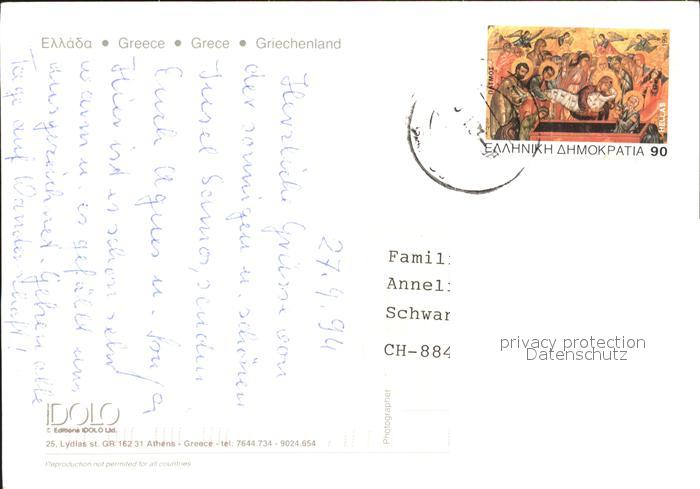 Ελλάδα • Greece • Grece • Griechenland
27.4.94
Herzliche Grüsse von
der sonnigen u. schönen
Insel Samos, senden
Euch Agnes u.
Hier ist es schon sehr
warm u. es gefällt uns
ausgezeichnet. Gehen alle
Tage auf Wanderschaft!
ΠΑΤΜΟΣ
1994
HELLAS
ΕΛΛΗΝΙΚΗ ΔΗΜΟΚΡΑΤΙΑ 90
Famil
Anneli
Schwar
CH-884
privacy protection
Datenschutz
Photographer
IDOLO
© Editions IDOLO Ltd.
25, Lydias st. GR 162 31 Athens - Greece - tel: 7644.734 - 9024.654
Reproduction not permited for all countries